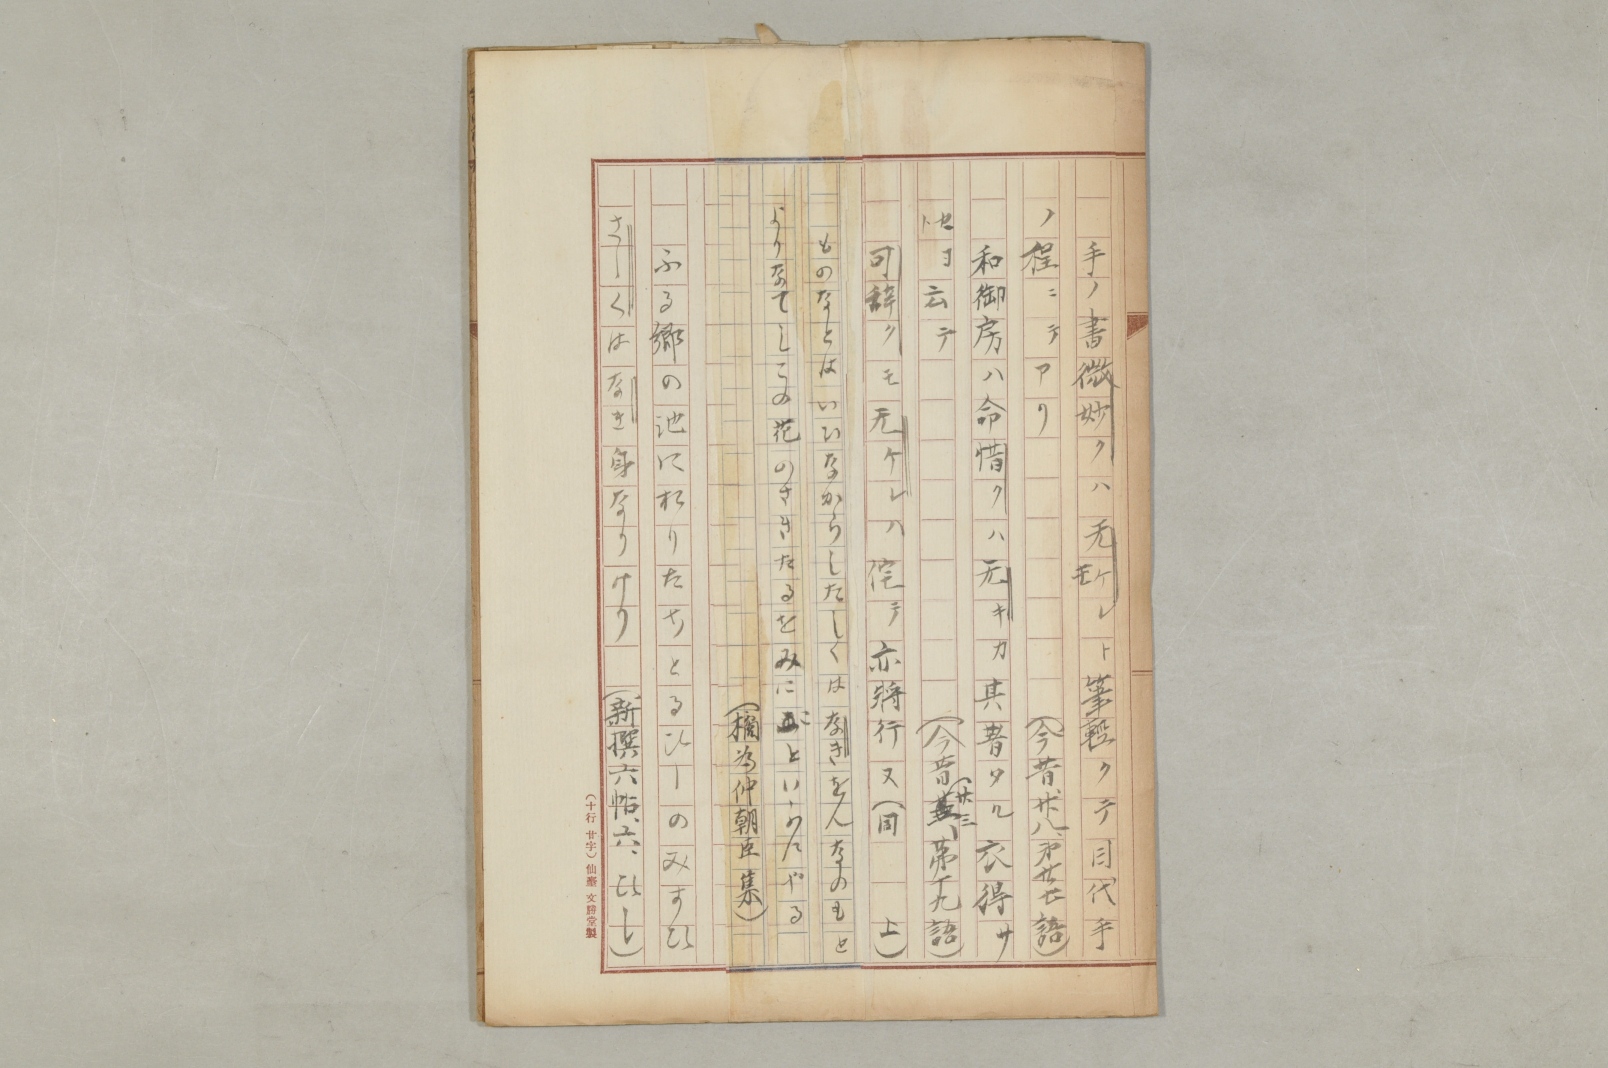 手ノ書微妙クハ无ケレト筆軽クテ目代手
ノ程ニテアリ（今昔、廿八、第廿七語）
和御房ハ命惜クハ无キカ其着タル衣得サ
セヨト云テ（今昔（廿三）第十九語）
可辞クモ无ケレハ侘テ亦将行ヌ（同上）
ものなとはいひなからしたしくはなきをんなのもと
よりなてしこの花のさきたるをみにこといひたにやる
（橘為仲朝臣集）
ふる郷の池におりたちとるひしのみすひ
さしくはなき身なりけり（新撰六帖、六、ひし）
（十行 廿字）仙臺 文勝堂製